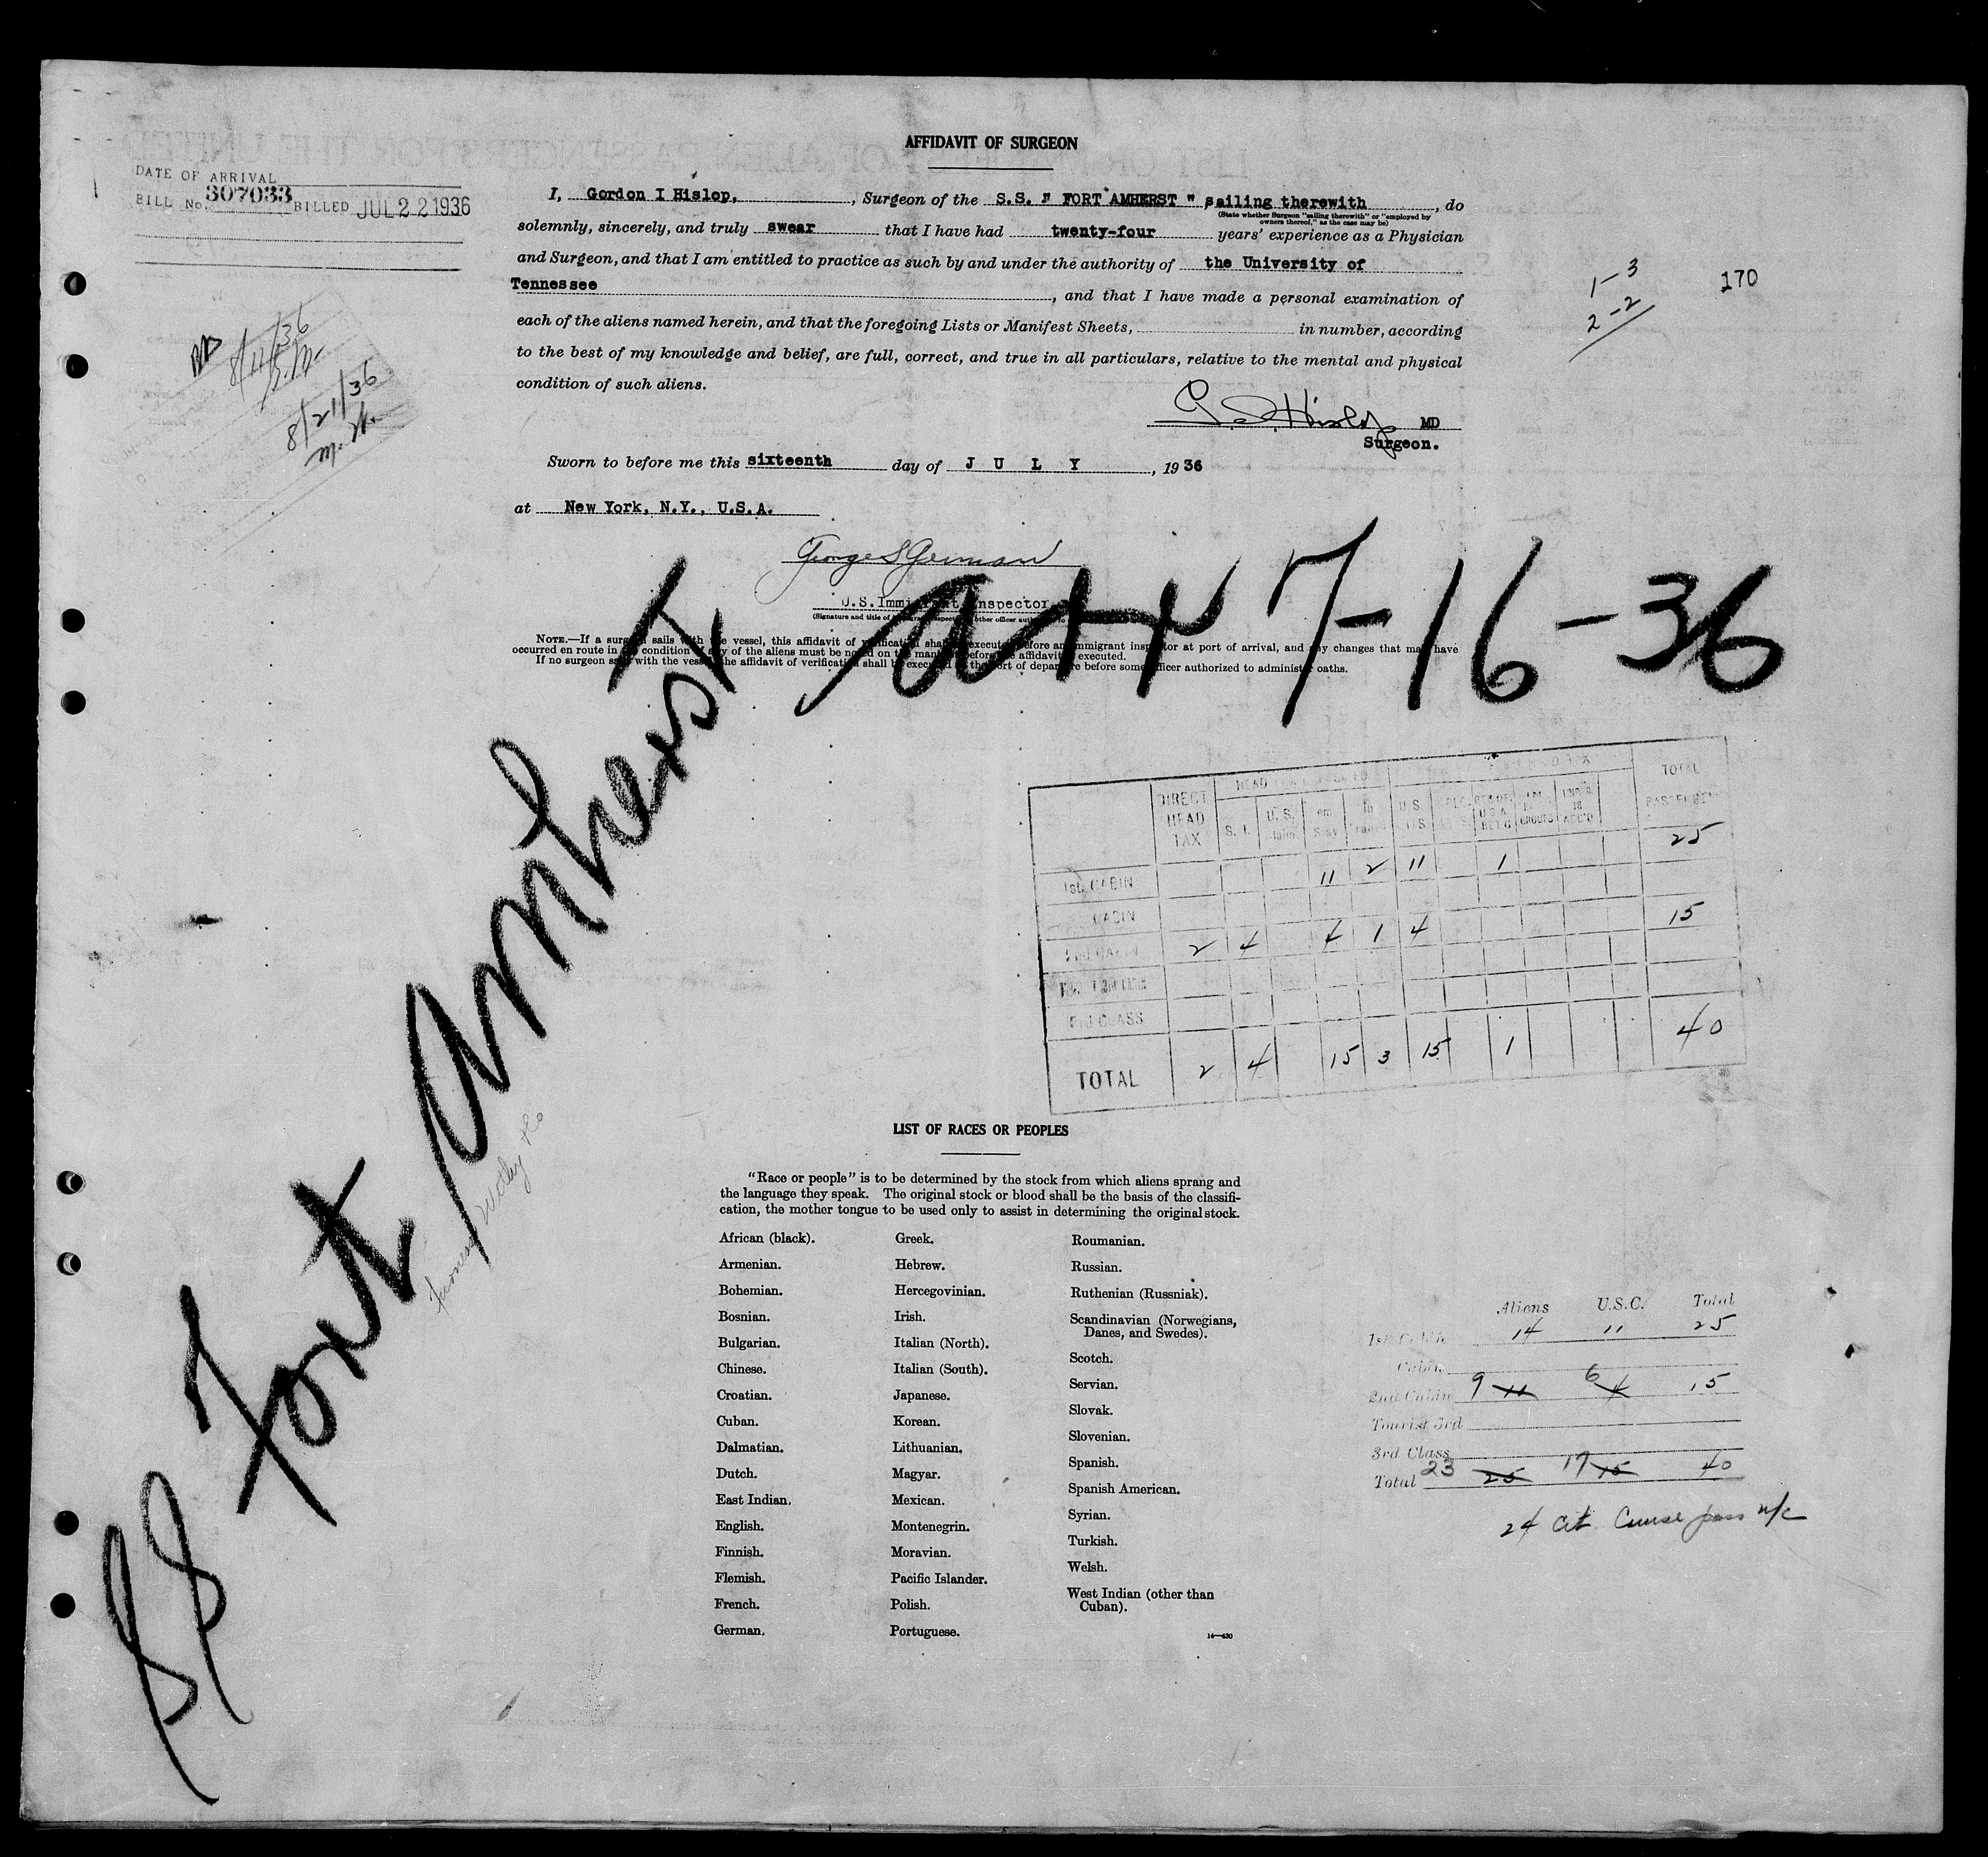 AFFIDAVIT OF SURGEON
DATE OF ARRIVAL
BILL No. 307033 BILLED JUL 22 1936
I, Gordon I Hislop, , Surgeon of the S.S. " FORT AMHERST " sailing therewith , do
(State whether Surgeon "sailing therewith" or "employed by
owners thereof," as the case may be)
solemnly, sincerely, and truly swear that I have had twenty-four years' experience as a Physician
and Surgeon, and that I am entitled to practice as such by and under the authority of the University of
Tennessee , and that I have made a personal examination of
each of the aliens named herein, and that the foregoing Lists or Manifest Sheets, in number, according
to the best of my knowledge and belief, are full, correct, and true in all particulars, relative to the mental and physical
condition of such aliens.
1-3
2-2
170
8/11/36
8/21/36
G. I. Hislop MD
Surgeon.
Sworn to before me this sixteenth day of J U L Y , 1936
at New York, N.Y., U.S.A.
George S
U.S. Immigrant Inspector
arr 7-16-36
NOTE.—If a surgeon sails with the vessel, this affidavit of verification shall be executed before an immigrant inspector at port of arrival, and any changes that may have
occurred en route in the condition of any of the aliens must be noted on the manifest before the affidavit is executed.
If no surgeon sails with the vessel, the affidavit of verification shall be executed at the port of departure before some officer authorized to administer oaths.
SS Fort Amherst
DIRECT HEAD TAX S. I. U. S. U.S. TOTAL
1st CABIN 11 2 11 1 25
CABIN
2nd CABIN 2 4 4 1 4 15
3rd CLASS
TOTAL 2 4 15 3 15 1 40
LIST OF RACES OR PEOPLES
"Race or people" is to be determined by the stock from which aliens sprang and
the language they speak. The original stock or blood shall be the basis of the classifi-
cation, the mother tongue to be used only to assist in determining the original stock.
African (black).
Armenian.
Bohemian.
Bosnian.
Bulgarian.
Chinese.
Croatian.
Cuban.
Dalmatian.
Dutch.
East Indian.
English.
Finnish.
Flemish.
French.
German.
Greek.
Hebrew.
Hercegovinian.
Irish.
Italian (North).
Italian (South).
Japanese.
Korean.
Lithuanian.
Magyar.
Mexican.
Montenegrin.
Moravian.
Pacific Islander.
Polish.
Portuguese.
Roumanian.
Russian.
Ruthenian (Russniak).
Scandinavian (Norwegians,
Danes, and Swedes).
Scotch.
Servian.
Slovak.
Slovenian.
Spanish.
Spanish American.
Syrian.
Turkish.
Welsh.
West Indian (other than
Cuban).
14—430
Aliens U.S.C. Total
1st Cabin 14 11 25
Cabin
2nd Cabin 9 11 6 4 15
Tourist 3rd
3rd Class
Total 23 25 17 15 40
24 Cit. Cruise pass n/c